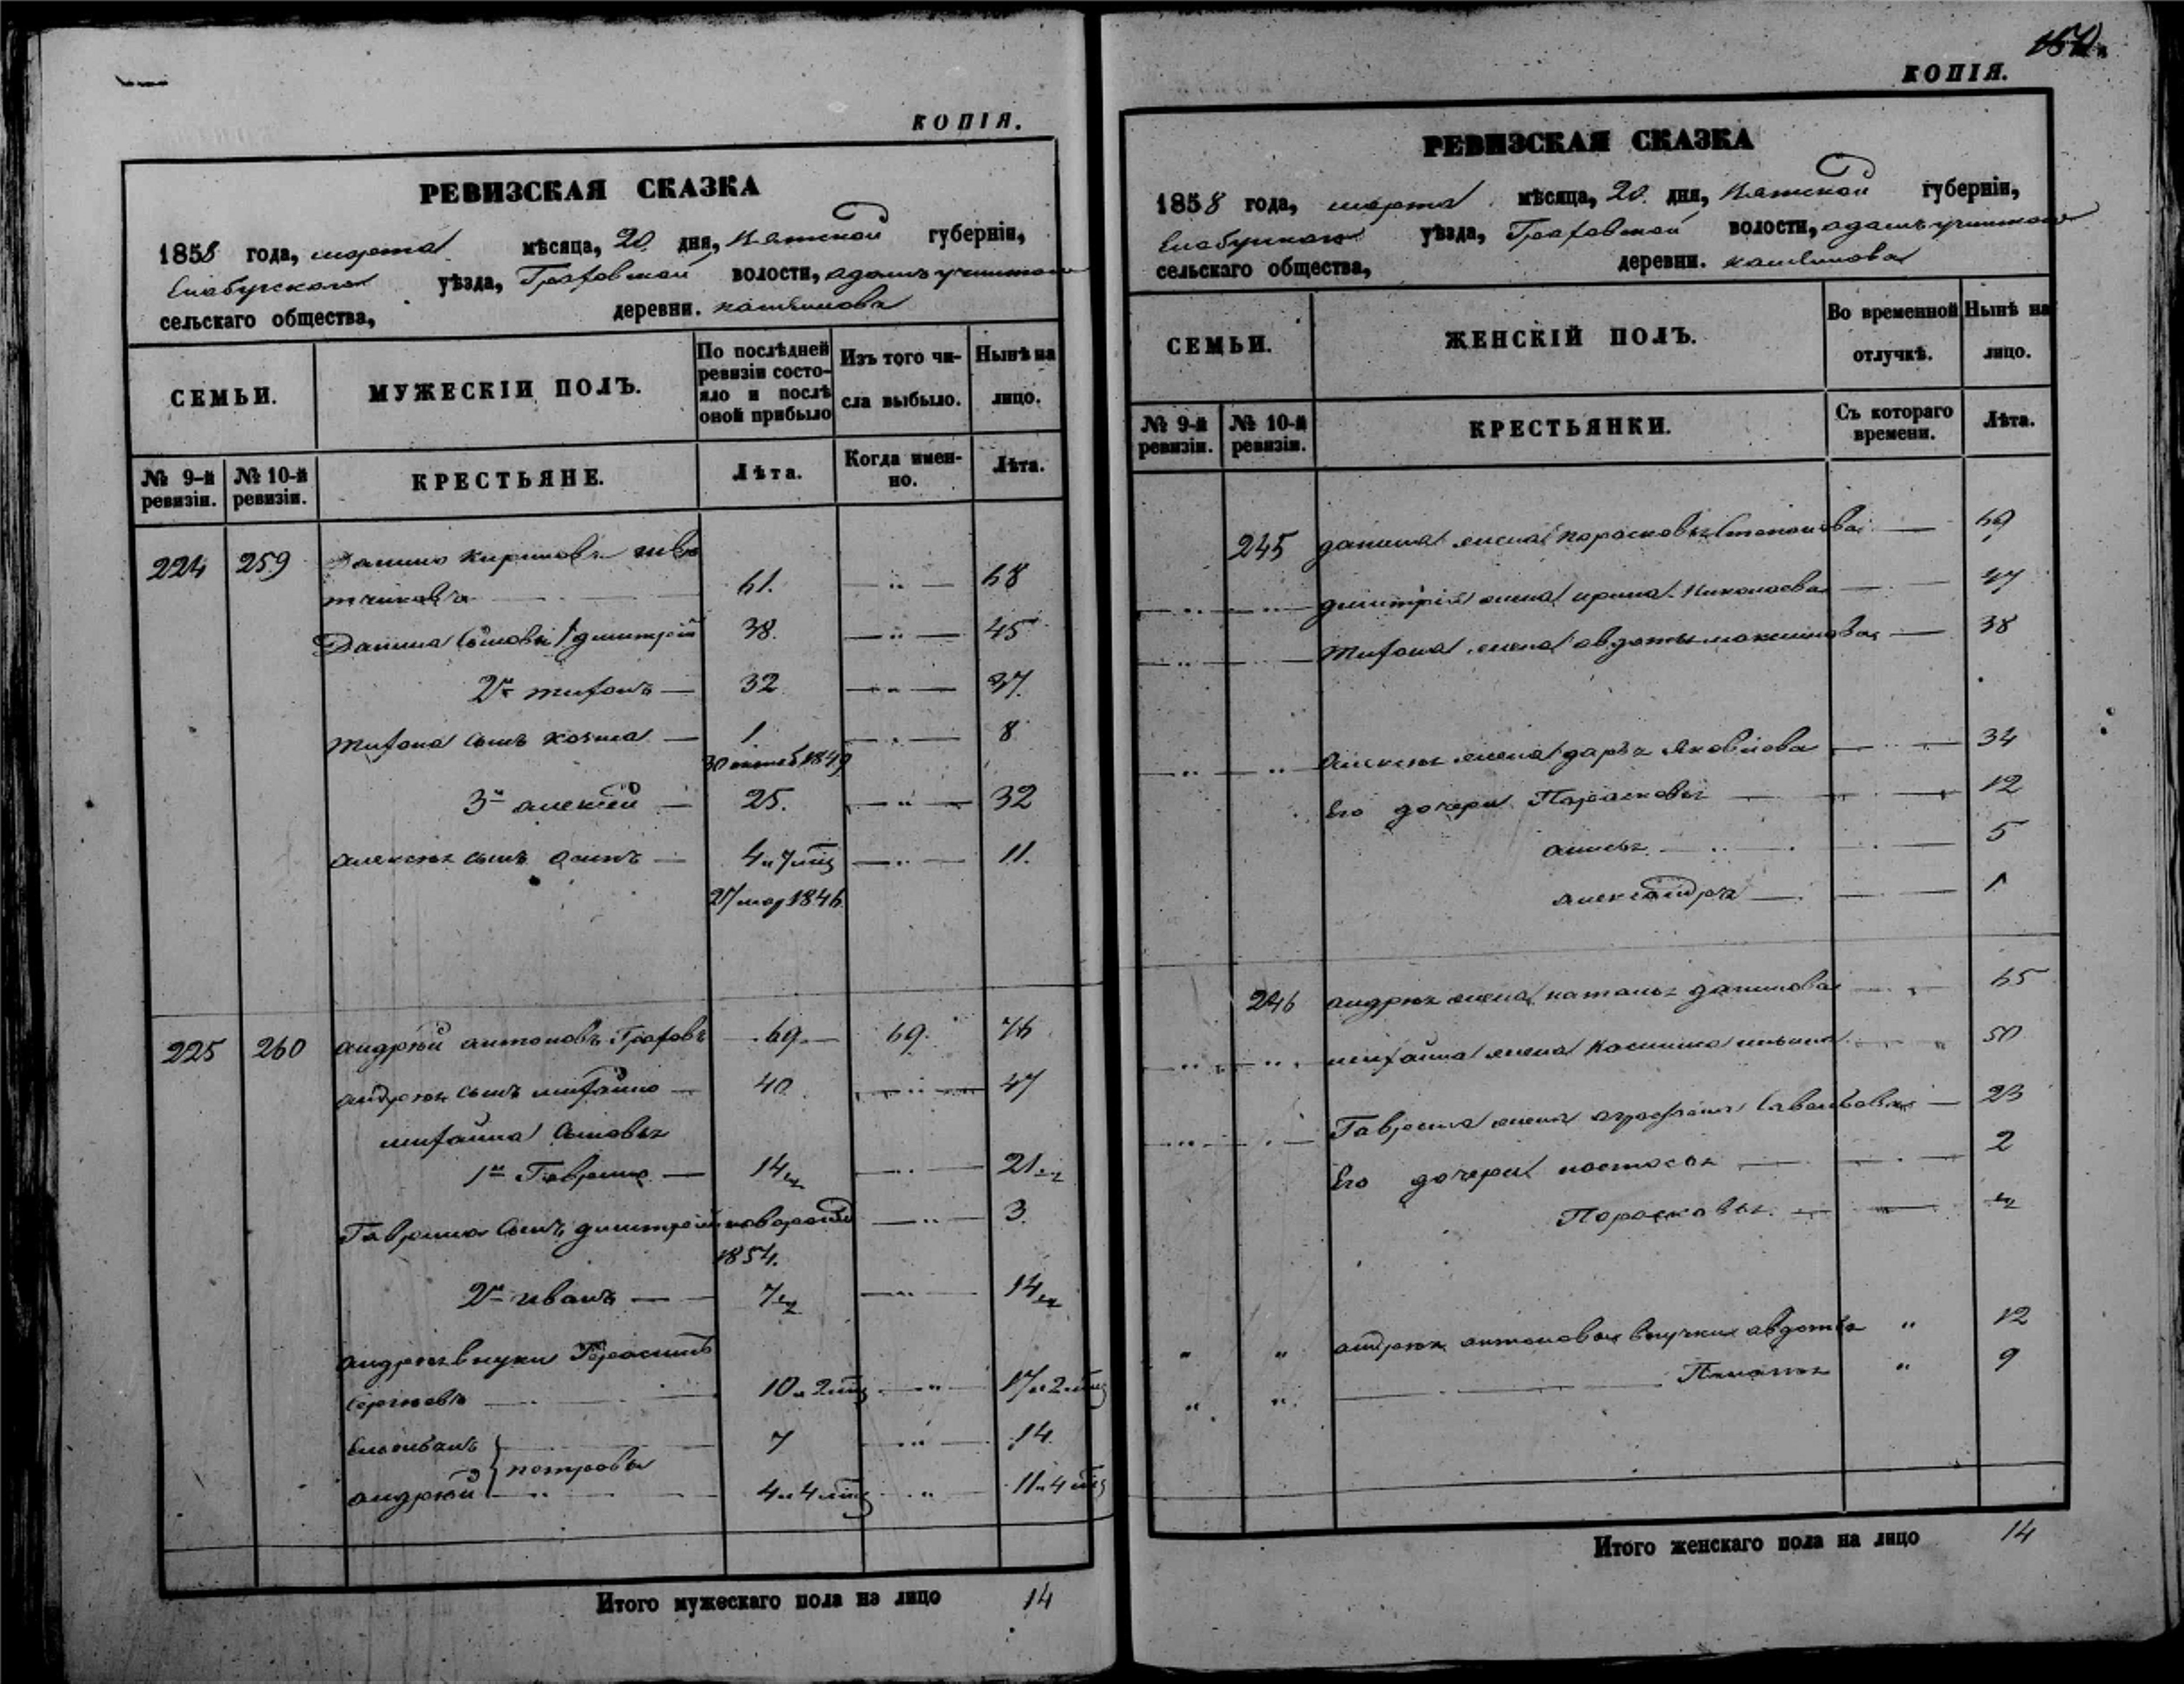 КОПІЯ.
РЕВИЗСКАЯ СКАЗКА
1858 года, марта мѣсяца, 20 дня, Вятской губерніи,
Елабужскаго уѣзда, Граховской волости,
сельскаго общества, деревни.
СЕМЬИ.
МУЖЕСКІЙ ПОЛЪ.
По послѣдней ревизіи состояло и послѣ оной прибыло
Изъ того числа выбыло.
Нынѣ на лицо.
№ 9-й ревизіи.
№ 10-й ревизіи.
КРЕСТЬЯНЕ.
Лѣта.
Когда именно.
Лѣта.
224 259 Данило Кириловъ
61. 68
Данила Сыновья 1 Дмитрей 38. 45
2й Тифонъ 32 37.
Тифона сынъ Козма 1. 8
1849
3й алексей 25. 32
алексея сынъ 4 и 7 мѣц 11.
1846.
225 260 андрей антоновъ Граховъ 69 69. 76
андрея сынъ михайло 40 47
михайла Сыновья
1й Гаврило 14½ 21½
Гаврила Сынъ дмитрей новорожд 3.
1854.
2й иванъ 7½ 14½
андрея внуки Герасимъ
Сергеевъ 10 и 2 мѣц 17 и 2 мѣц
7 14.
андрей петровы 4 и 4 мѣц 11 и 4 мѣц
Итого мужескаго пола на лицо 14
КОПІЯ.
РЕВИЗСКАЯ СКАЗКА
1858 года, марта мѣсяца, 20 дня, Вятской губерніи,
Елабужскаго уѣзда, Граховской волости,
сельскаго общества, деревни.
СЕМЬИ.
ЖЕНСКІЙ ПОЛЪ.
Во временной отлучкѣ.
Нынѣ на лицо.
№ 9-й ревизіи.
№ 10-й ревизіи.
КРЕСТЬЯНКИ.
Съ котораго времени.
Лѣта.
245 данила жена Парасковья Степанова 69
дмитрія жена ирина Николаева 47
Тифона жена авдотья максимова 38
алексея жена дарья Яковлева 34
Его дочери Парасковья 12
анисья 5
александра 1
246 андрея жена наталья данилова 65
михайла жена 50
Гаврила жена 23
Его дочери настасья 2
Парасковья ½
андрея антонова внучки авдотья 12
Пелагея 9
Итого женскаго пола на лицо 14